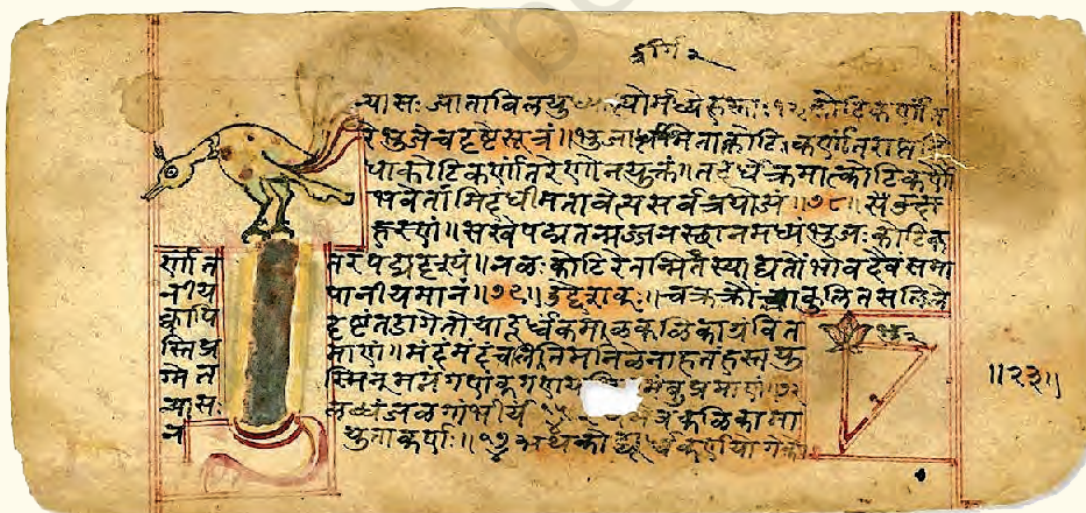 न्यासः जाताबिल र्मध्येहस्ताः १२ कोटिकर्णांत
रेभुजेचदृष्टेसूत्रं॥ कोटिकर्णांतराप्तंद्वि
धाकोटिकर्णांतरेणोनयुक्तं॥तदर्धेक्रमात्कोटिकर्णौ
भवेतामिदंधीमतावेत्यसर्वत्रयोज्यं॥७८॥
हरणं॥सखेपद्मतन्मज्जनस्थानमध्यंभुजःकोटिक
र्णांत तरंपद्मदृश्यं॥नळःकोटिरेतन्मितंस्याद्यतोंभोवदैवंसमा
नीय पानीयमानं॥७९॥ चक्रक्रौंचाकुलितसलिले
क्वापि दृष्टंतडागेतोयादूर्ध्वंकमळकळिकाग्रंवित
स्तिप्र माणं॥मंदंमंदंचलितमनिळेनाहतंहस्तयु
ग्मेत स्मिन्मग्नंगणकगणय मंबुप्रमाणं
न्यासः लब्धंजळगांभीर्यं कळिकामा
न युताकर्णः॥१७
२
॥२३॥